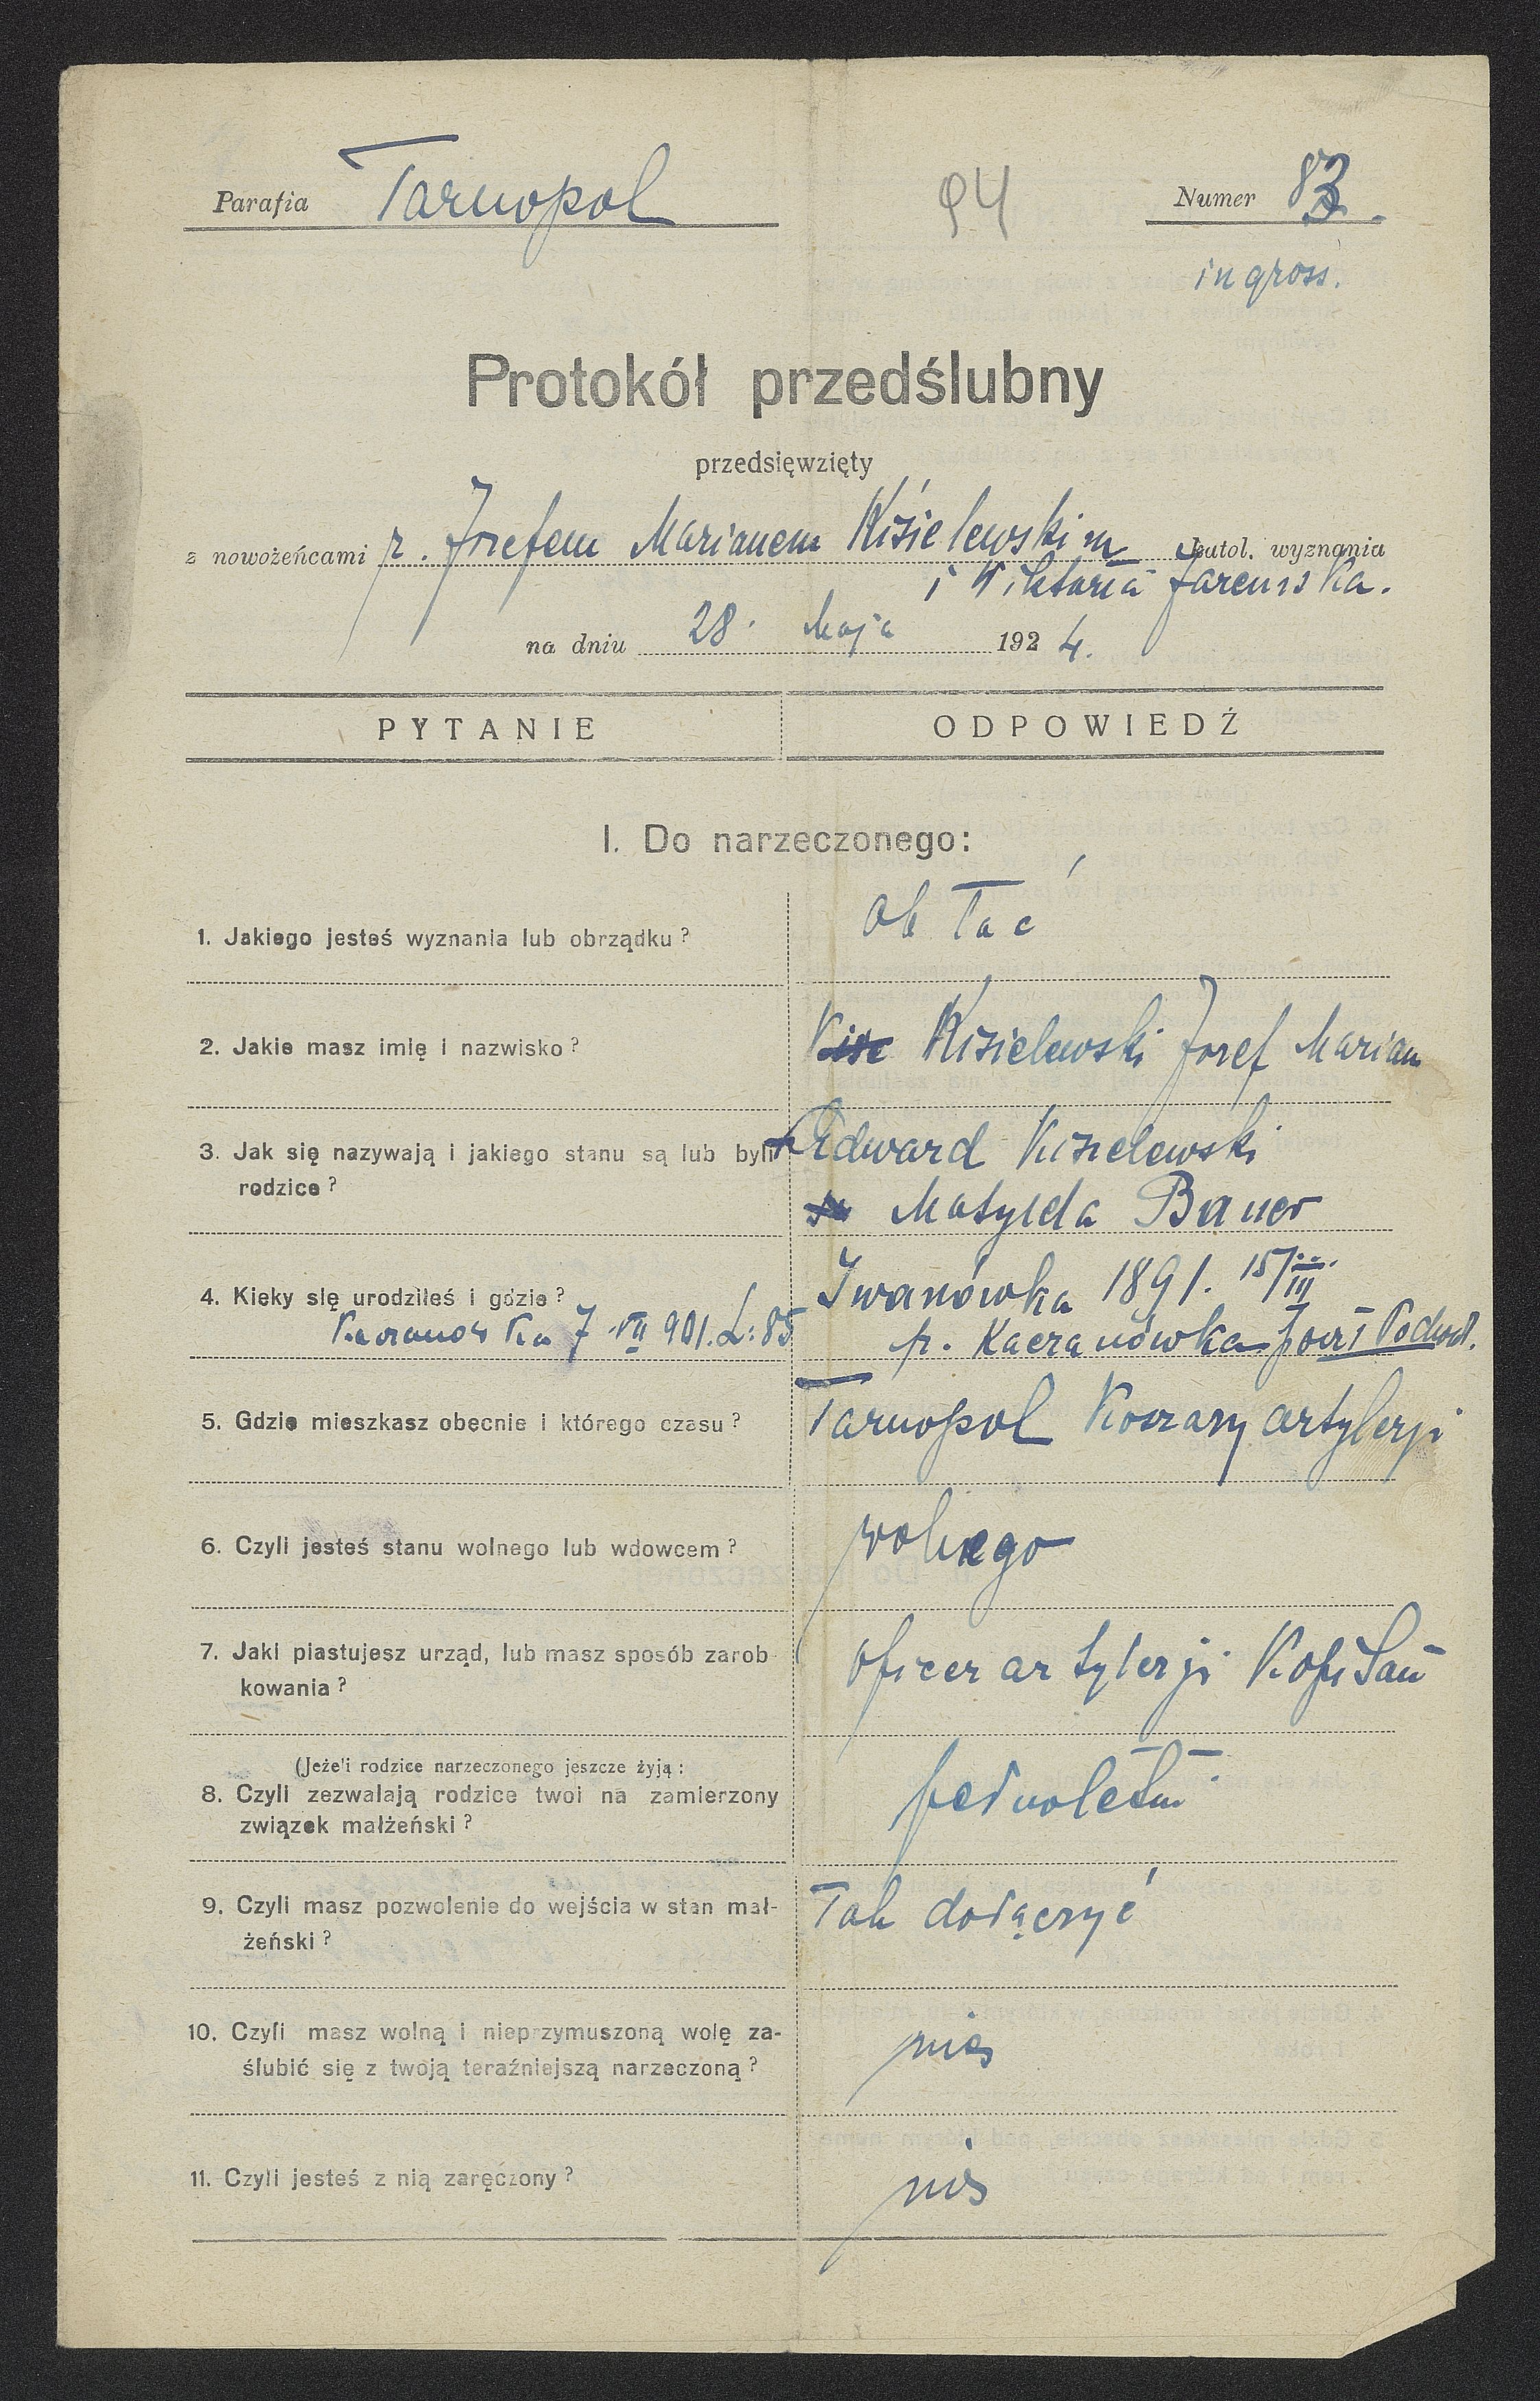 Parafia Tarnopol 94 Numer 83.
in gross.
Protokół przedślubny
przedsięwzięty
z nowożeńcami r. Józefem Marianem Kisielewskim katol. wyznania
i Wiktoria Jaremska.
na dniu 28. Maja 1924.
PYTANIE ODPOWIEDŹ
I. Do narzeczonego:
1. Jakiego jesteś wyznania lub obrządku? ob łać
2. Jakie masz imię i nazwisko? Kise Kisielewski Józef Marian
3. Jak się nazywają i jakiego stanu są lub byli Edward Kisielewski
rodzice? Matylda Bauer
4. Kieky się urodziłeś i gdzie? Iwanówka 1891. 15/III.
Kaczanówka 7 VII 901. L: 85 p. Kaczanówka
5. Gdzie mieszkasz obecnie i którego czasu? Tarnopol Koszary artylerji
6. Czyli jesteś stanu wolnego lub wdowcem? wolnego
7. Jaki piastujesz urząd, lub masz sposób zarob- oficer artylerji Kapitan
kowania?
(Jeżeli rodzice narzeczonego jeszcze żyją:
8. Czyli zezwalają rodzice twoi na zamierzony pełnoletni
związek małżeński?
9. Czyli masz pozwolenie do wejścia w stan mał- Tak dołączyć
żeński?
10. Czyli masz wolną i nieprzymuszoną wolę za-
ślubić się z twoją teraźniejszą narzeczoną?
11. Czyli jesteś z nią zaręczony?